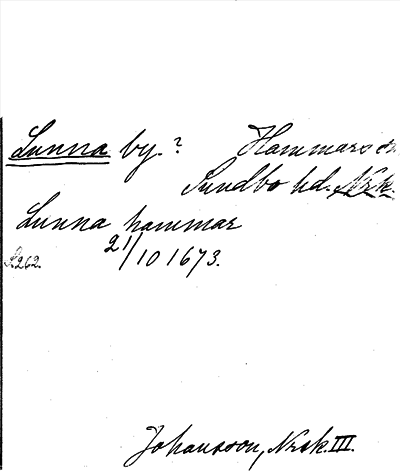 Lunna by. ? Hammars sn.
Sundbo hd. Nrk.
Lunna hammar
21/10 1673.
R262.
Johansson, Nrsk. III.